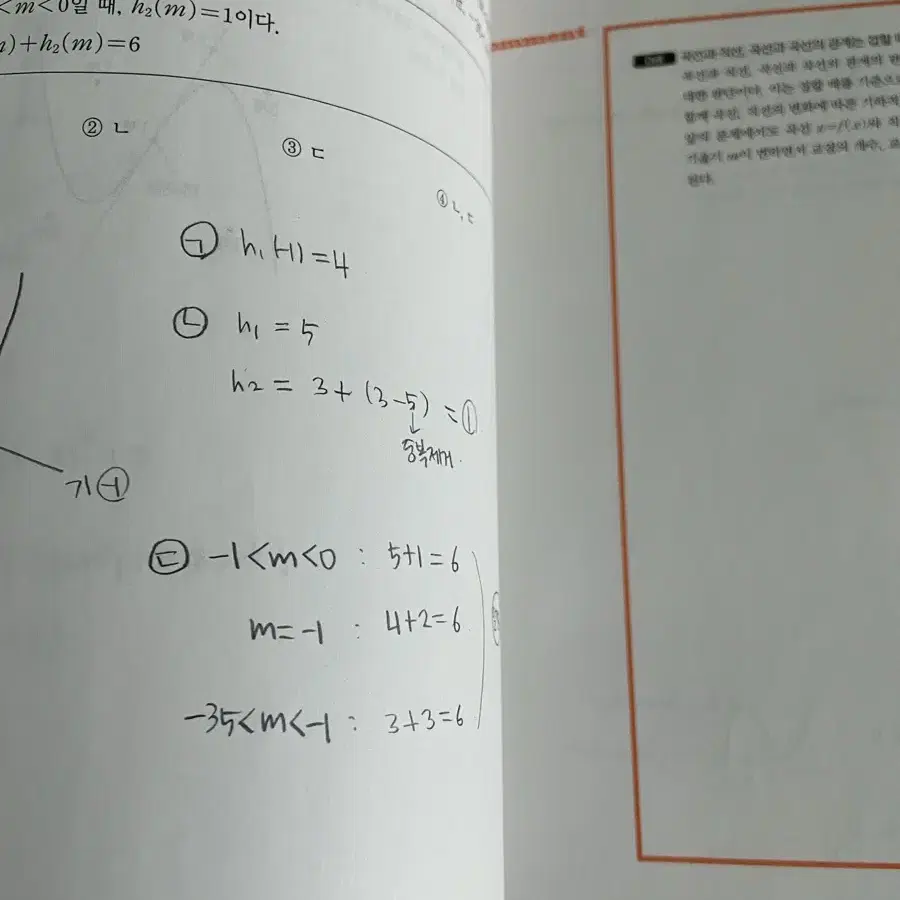 <m<0일 때, h₂(m)=1이다.
)+h₂(m)=6
② ㄴ
③ ㄷ
④ ㄴ, ㄷ
㉠ h₁(-1)=4
㉡ h₁ = 5
h₂ = 3+(3-5) = ①
↓
중복제거.
기 -1
㉢ -1<m<0 : 5+1=6
m=-1 : 4+2=6
-35<m<-1 : 3+3=6
곡선과 직선, 곡선과 곡선의 관계는 접할 때
곡선과 직선, 곡선과 곡선의 관계의 판
대한 판단이다. 이는 접할 때를 기준으로
함께 곡선, 직선의 변화에 따른 기하적
앞의 문제에서도 곡선
기울기 m이 변하면서 교점의 개수,
된다.